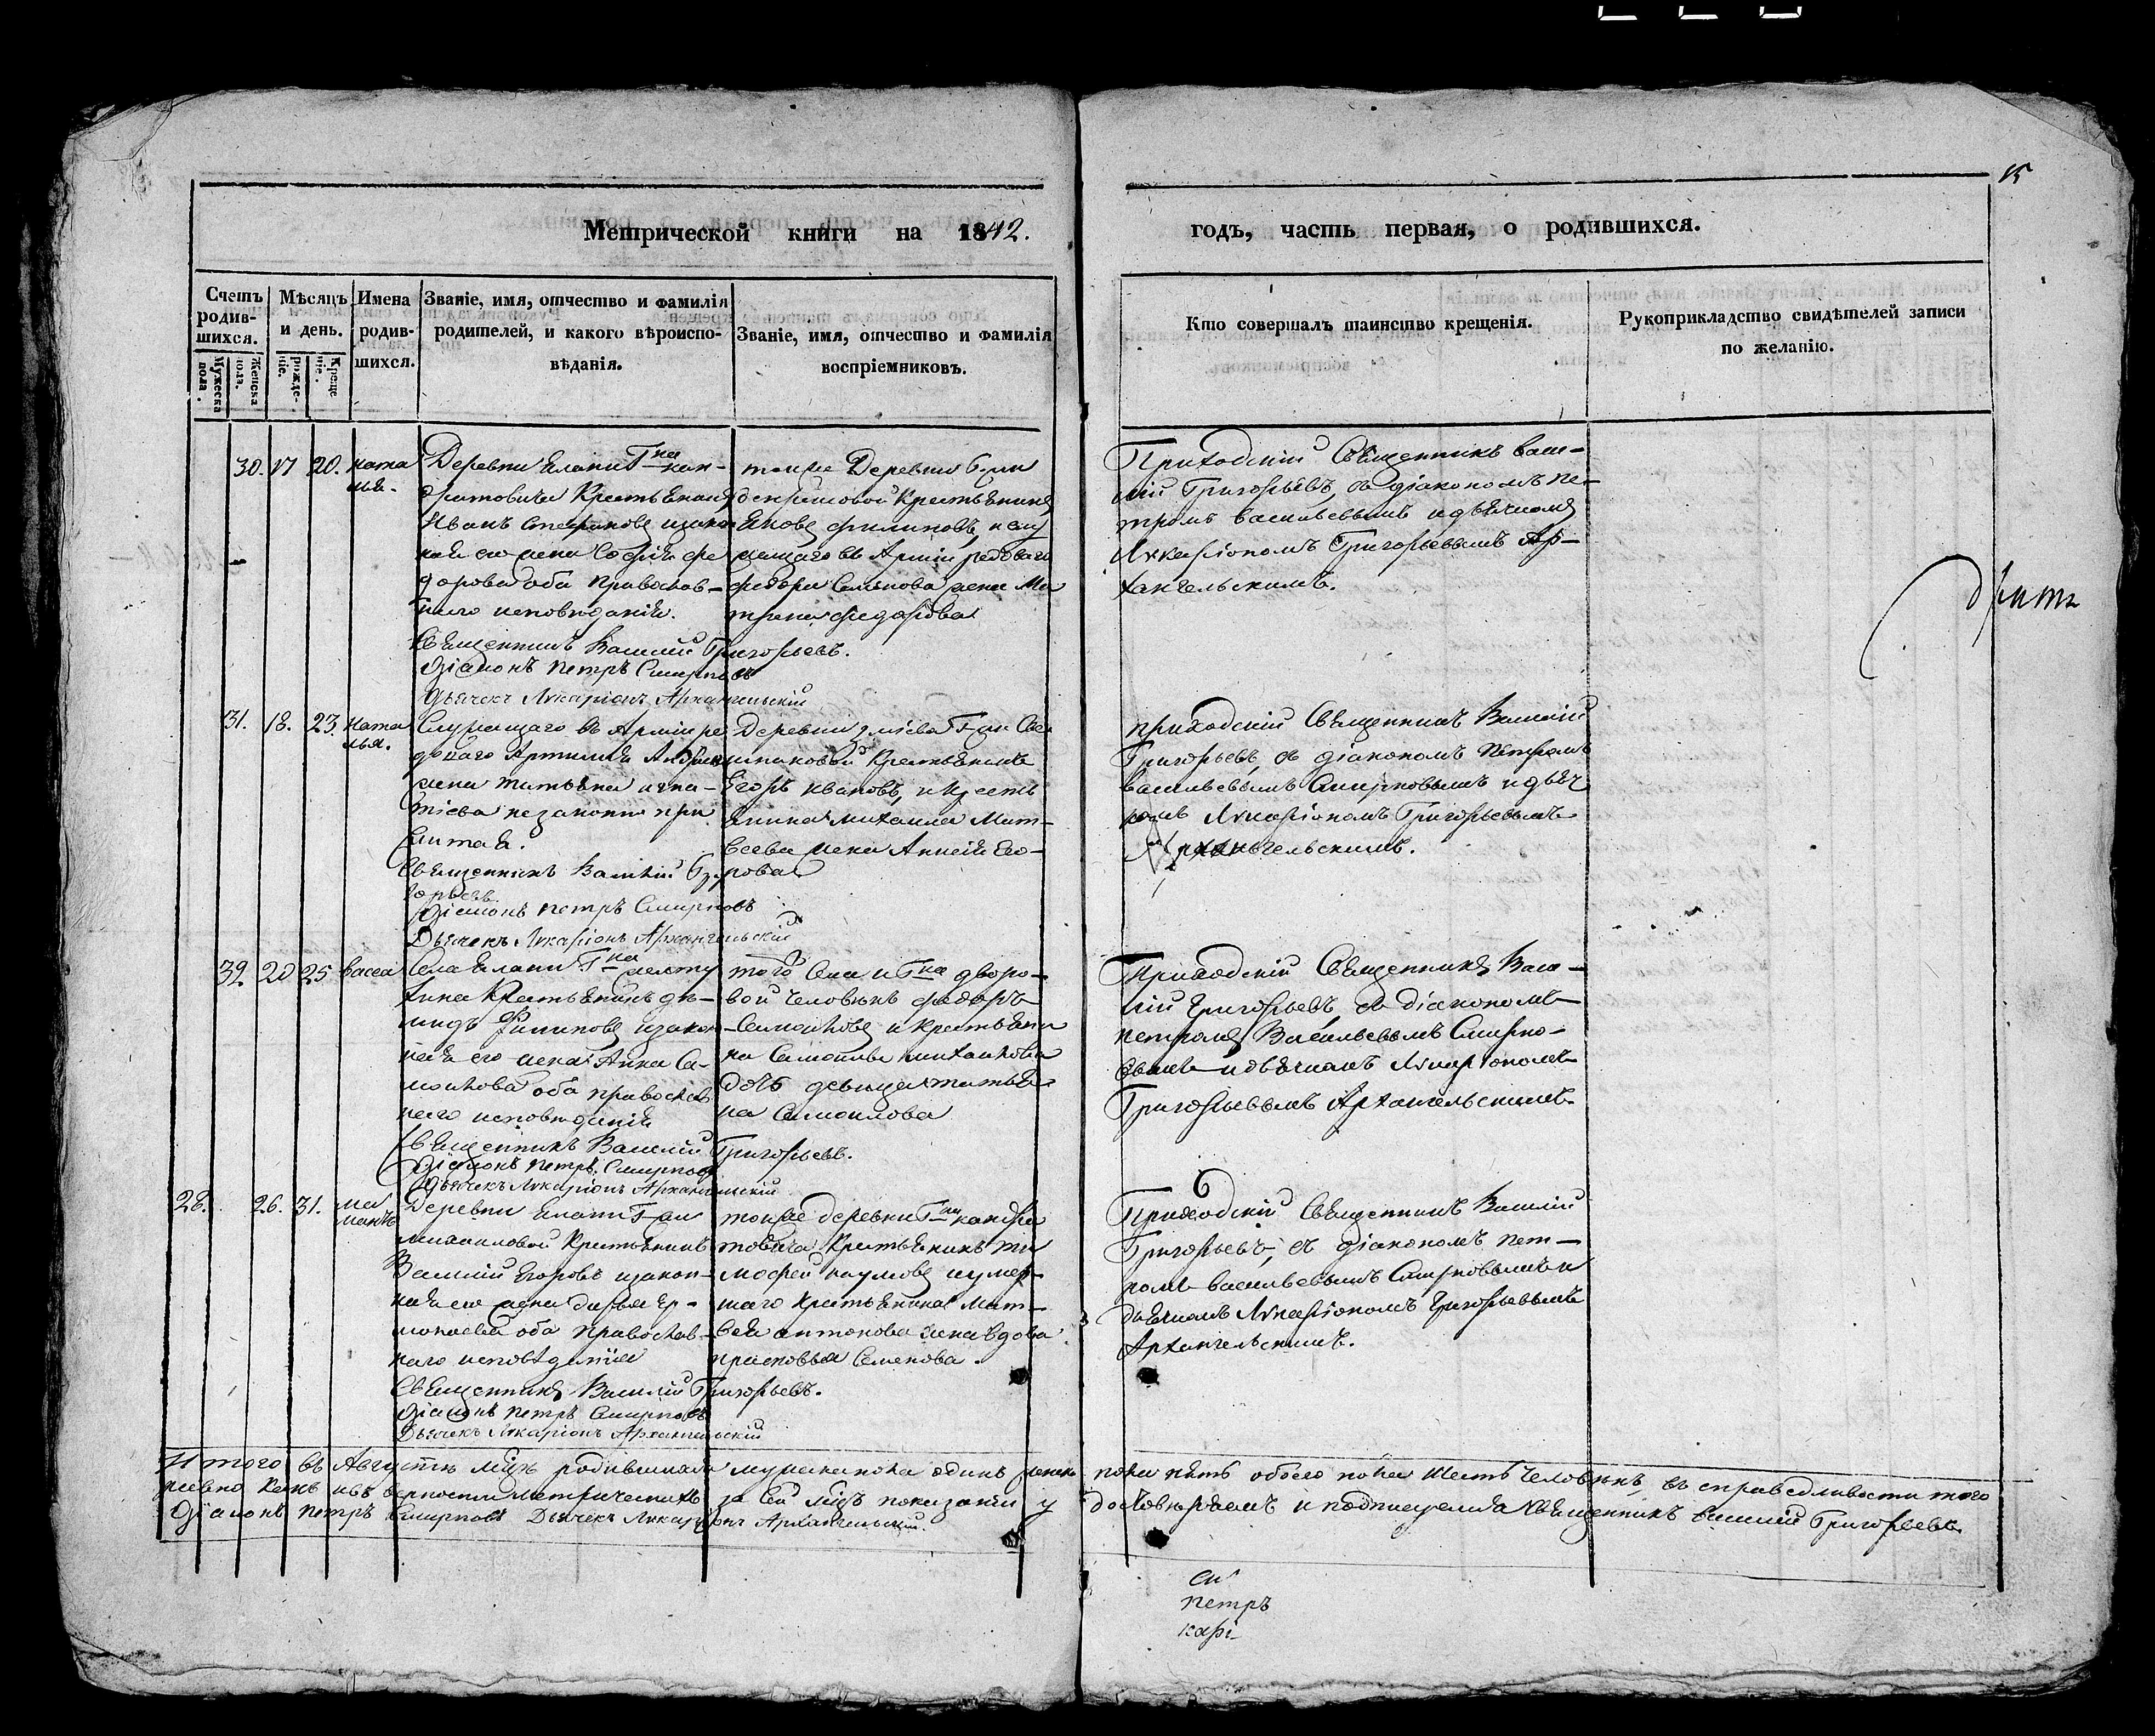 15
Метрической книги на 1842.
годъ, часть первая, о родившихся.
Счетъ родив-шихся.
Мужеска пола.
Женска пола.
Мѣсяцъ и день.
рожде-ніе.
Креще ніе.
Имена родив-шихся.
Званіе, имя, отчество и фамилія
родителей, и какого вѣроиспо-
вѣданія.
Званіе, имя, отчество и фамилія
воспріемниковъ.
Кто совершалъ таинство крещенія.
Рукоприкладство свидѣтелей записи
по желанію.
30. 17 20. ната
лья.
Деревни Елани Г-на кан-
дратовича Крестьянинъ
Иванъ Стефановъ и закон
ная его жена Софія фе
дорова оба православ-
наго исповѣданія.
Священникъ Василій Григорьевъ.
Діаконъ Петръ Смирновъ
Дьячекъ Лукаріонъ Архангельскій
тойже Деревни Г-жи
Крестьянинъ
Яковъ филиповъ, и слу
жащаго въ Арміи редоваго
федора Семенова жена Ма
трена федорова
Приходскій Священникъ Васи-
лій Григорьевъ, съ діакономъ Пе-
тромъ васильевымъ и дьячкомъ
Лукаріономъ Григорьевымъ Ар-
хангельскимъ.
31. 18. 23. ната
лья.
Служащаго въ Арміи ре
доваго Артемія
жена татьяна игна-
тіева незаконно при
житая.
Священникъ Василій Гри
горьевъ.
Діаконъ Петръ Смирновъ
Дьячекъ Лукаріонъ Архангельскій
Деревни Г-жи
Крестьянинъ
Егоръ ивановъ, и кресть
янина михаила Мат-
веева жена Анисія Его-
рова
приходскій Священникъ Василій
Григорьевъ, съ діакономъ Петромъ
васильевымъ Смирновымъ и дьяч
комъ Лукаріономъ Григорьевымъ
Архангельскимъ.
32 20 25 васса
Села Елани Г-на
Крестьянинъ
филиповъ и закон
ная его жена Анна Са-
мойлова оба православ
наго исповѣданія
Священникъ Василій Григорьевъ.
Діаконъ Петръ Смирновъ
Дьячекъ Лукаріонъ Архангельскій
того Села и Г-на дворо-
вой человѣкъ федоръ
Самойловъ и крестьяни
на Самойлы михайлова
дочь девица татья
на Самойлова
Приходскій Священникъ Васи-
лій Григорьевъ, съ діакономъ
петромъ Васильевымъ Смирно-
вымъ и дьячкомъ Лукаріономъ
Григорьевымъ Архангельскимъ
28. 26. 31. Ма
мантъ
Деревни Елани Г-жи
михайловой Крестьянинъ
Василій Егоровъ и закон-
ная его жена дарья Ер-
молаева оба православ-
наго исповѣданія
Священникъ Василій Григорьевъ.
Діаконъ Петръ Смирновъ
Дьячекъ Лукаріонъ Архангельскій
тойже деревни Г-на кандра
товича Крестьянинъ ти
мофей наумовъ и умер-
шаго крестьянина Мат-
вея антонова жена вдова
прасковья Семенова.
Приходскій Священникъ Василій
Григорьевъ, съ діакономъ Пет-
ромъ васильевымъ Смирновымъ и
дьячкомъ Лукаріономъ Григорьевымъ
Архангельскимъ.
Итого въ Августѣ мцѣ родившихся мужеска пола одинъ женска пола пять обоего пола шесть человѣкъ, въ справедливости того
равно какъ и въ верности метрическихъ за сей мцъ показаній удостоверяемъ и подписуемся Священникъ василій Григорьевъ
Діаконъ Петръ Смирновъ Дьячекъ Лукаріонъ Архангельскій.
Петръ
карі